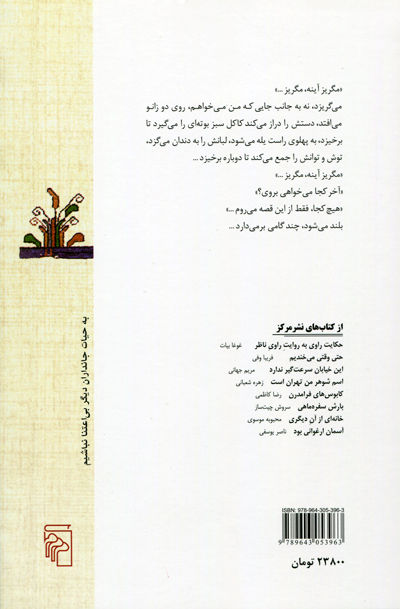 «مگریز آینه، مگریز ...»
می‌گریزد، نه به جانب جایی که من می‌خواهم، روی دو زانو
می‌افتد، دستش را دراز می‌کند کاکل سبز بوته‌ای را می‌گیرد تا
برخیزد، به پهلوی راست یله می‌شود، لبانش را به دندان می‌گزد،
توش و توانش را جمع می‌کند تا دوباره برخیزد ...
«مگریز آینه، مگریز ...»
«آخر کجا می‌خواهی بروی؟»
«هیچ کجا، فقط از این قصه می‌روم ...»
بلند می‌شود، چند گامی برمی‌دارد ...
از کتاب‌های نشرمرکز
حکایت راوی به روایت راوی ناظر غوغا بیات
حتی وقتی می‌خندیم فریبا وفی
این خیابان سرعت‌گیر ندارد مریم جهانی
اسم شوهر من تهران است زهره شعبانی
کابوس‌های فرامدرن رضا کاظمی
بارش سفره‌ماهی سروش چیت‌ساز
خانه‌ای از آنِ دیگری محبوبه موسوی
آسمان ارغوانی بود ناصر یوسفی
به حیات جانداران دیگر بی‌اعتنا نباشیم
ISBN: 978-964-305-396-3
9 789643 053963
۲۳۸۰۰ تومان